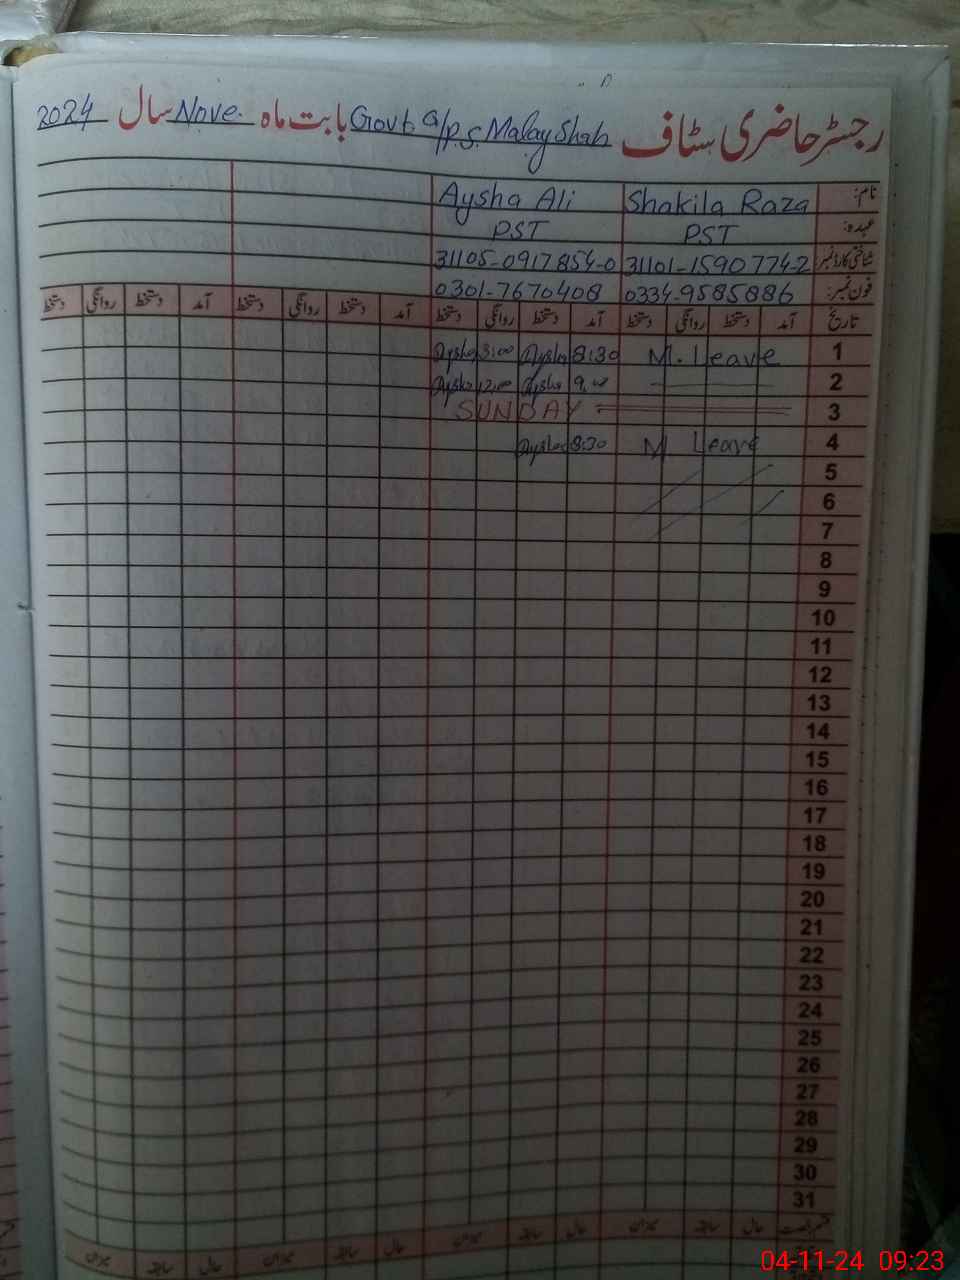 رجسٹر حاضری سٹاف Govt G/P.S. Malay Shah بابت ماہ Nove. سال 2024
نام: Shakila Raza Aysha Ali
عہدہ: PST PST
شناختی کارڈ نمبر 31101-1590774-2 31105-0917854-0
فون نمبر: 0334-9585886 0301-7670408
تاریخ آمد دستخط روانگی دستخط آمد دستخط روانگی دستخط آمد دستخط روانگی دستخط آمد دستخط روانگی دستخط
1 M. Leave 8:30 Aysha 3:00 Aysha
2 Aysha 12:00 Aysha
3 SUNDAY
4 M Leave 8:30 Aysha
5
6
7
8
9
10
11
12
13
14
15
16
17
18
19
20
21
22
23
24
25
26
27
28
29
30
31
حال سابقہ میزان حال سابقہ میزان حال سابقہ میزان حال سابقہ میزان
04-11-24 09:23